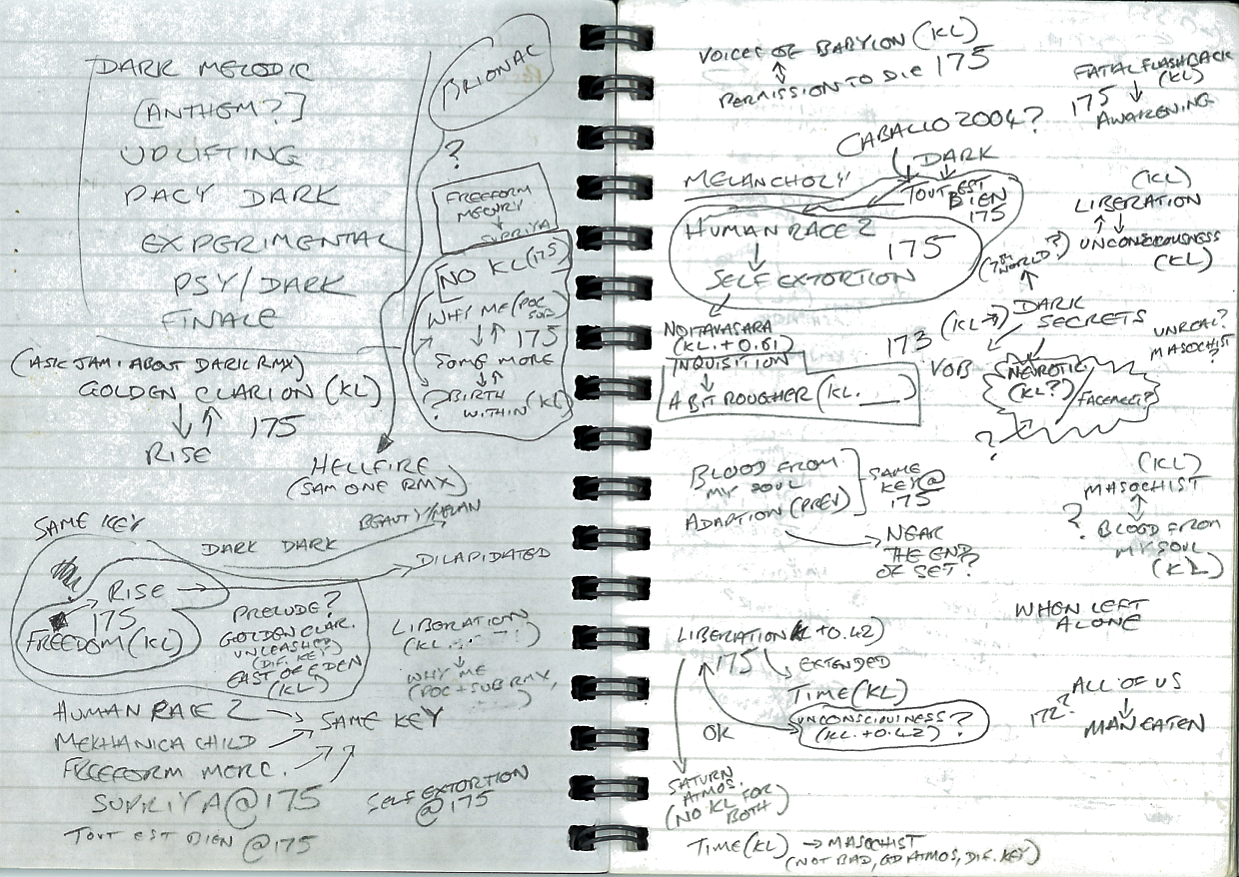 DARK MELODIC
[ANTHEM?]
UPLIFTING
PACY DARK
EXPERIMENTAL
PSY/DARK
FINALE
(ASK SAM. ABOUT DARK RMX)
GOLDEN CLARION (KL)
175
RISE
BRIONAC
?
FREEFORM
MERCURY
SUPRIYA
NO KL (175)
WHY ME (POC
SUB)
175
SOME MORE
? BIRTH
WITHIN (KL)
HELLFIRE
(SAM ONE RMX)
SAME KEY
DARK DARK
BEAUTY/MELAN
DILAPIDATED
RISE
175
FREEDOM (KL)
PRELUDE?
GOLDEN CLAR.
UNLEASHED
(DIF. KEY)
EAST OF EDEN
(KL)
LIBERATION
(KL. . - - - )
WHY ME
(POC + SUB RMX,
)
HUMAN RACE 2
SAME KEY
MEKHANICA CHILD
FREEFORM MERC.
SUPRIYA @ 175
SELF EXTORTION
@ 175
TOUT EST BIEN @ 175
VOICES OF BABYLON (KL)
175
PERMISSION TO DIE
FATAL FLASHBACK
(KL)
175
AWAKENING
CABALLO 2004?
DARK
MELANCHOLY
TOUT EST
BIEN
175
HUMAN RACE 2
175
SELF EXTORTION
(KL)
LIBERATION
UNCONSCIOUSNESS
(KL)
(7TH WORLD?)
DARK
SECRETS
(KL→)
173
VOB
NEUROTIC
(KL?)
FACELESS?
?
UNREAL?
MASOCHIST
?
NOITAVASARA
(KL. + 0.61)
INQUISITION
A BIT ROUGHER (KL. __)
BLOOD FROM
MY SOUL
ADAPTION (PREV)
SAME
KEY @
175
NEAR
THE END
OF SET?
(KL)
MASOCHIST
?
BLOOD FROM
MY SOUL
(KL)
WHEN LEFT
ALONE
LIBERATION (KL + 0.42)
175
EXTENDED
TIME (KL)
UNCONSCIOUSNESS?
(KL. + 0.42)
OK
ALL OF US
172?
MAN EATEN
SATURN
ATMOS.
(NO KL FOR
BOTH)
TIME (KL) → MASOCHIST
(NOT BAD, GD ATMOS, DIF. KEY)